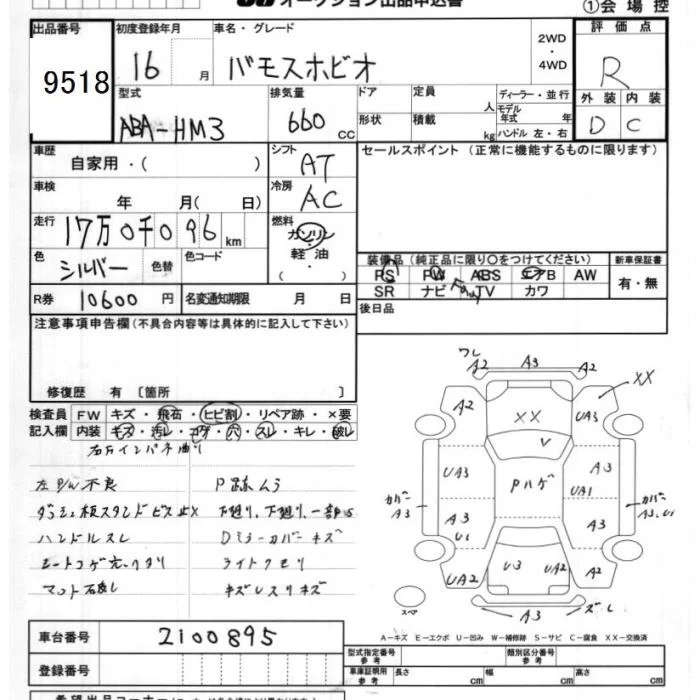 オークション出品申込書
①会場控
出品番号 初度登録年月 車名・グレード 2WD・4WD 評価点
9518 16 月 バモスホビオ R
型式 排気量 ドア 定員 人 ディーラー・並行 外装 内装
ABA-HM3 660 CC 形状 積載 kg モデル年式 年 ハンドル 左・右 D C
車歴 自家用・( ) シフト AT セールスポイント (正常に機能するものに限ります)
車検 年 月( 日) 冷房 AC
走行 17万0千096 km 燃料 ガソリン・軽油 ( )
色 シルバー 色替 色コード
装備品 (純正品に限り○をつけてください) 新車保証書
PS PW ABS エアB AW 有・無
SR ナビ TV カワ
R券 10600 円 名変通知期限 月 日 後日品
注意事項申告欄(不具合内容等は具体的に記入して下さい)
修復歴 有 〔箇所 〕
検査員記入欄 FW キズ・飛石・ヒビ割・リペア跡・×要
内装 キズ・汚レ・コゲ・穴・スレ・キレ・破レ
左P/W不良 P跡ムラ
ハンドルスレ Dミラーカバーキズ
ライトクモリ
ワレ A2 A3 A2 XX
A2 XX UA3
V
UA3 Pハゲ A3
UA1
カバー A3 A3 U1 カバー A3,U1
UA2 U3 UA2 A2
スペア A3 ズレ
A−キズ E−エクボ U−凹み W−補修跡 S−サビ C−腐食 XX−交換済
車台番号 2100895
型式指定番号 参考 類別区分番号 参考
登録番号 車庫証明用 参考 長さ cm 幅 cm 高さ cm